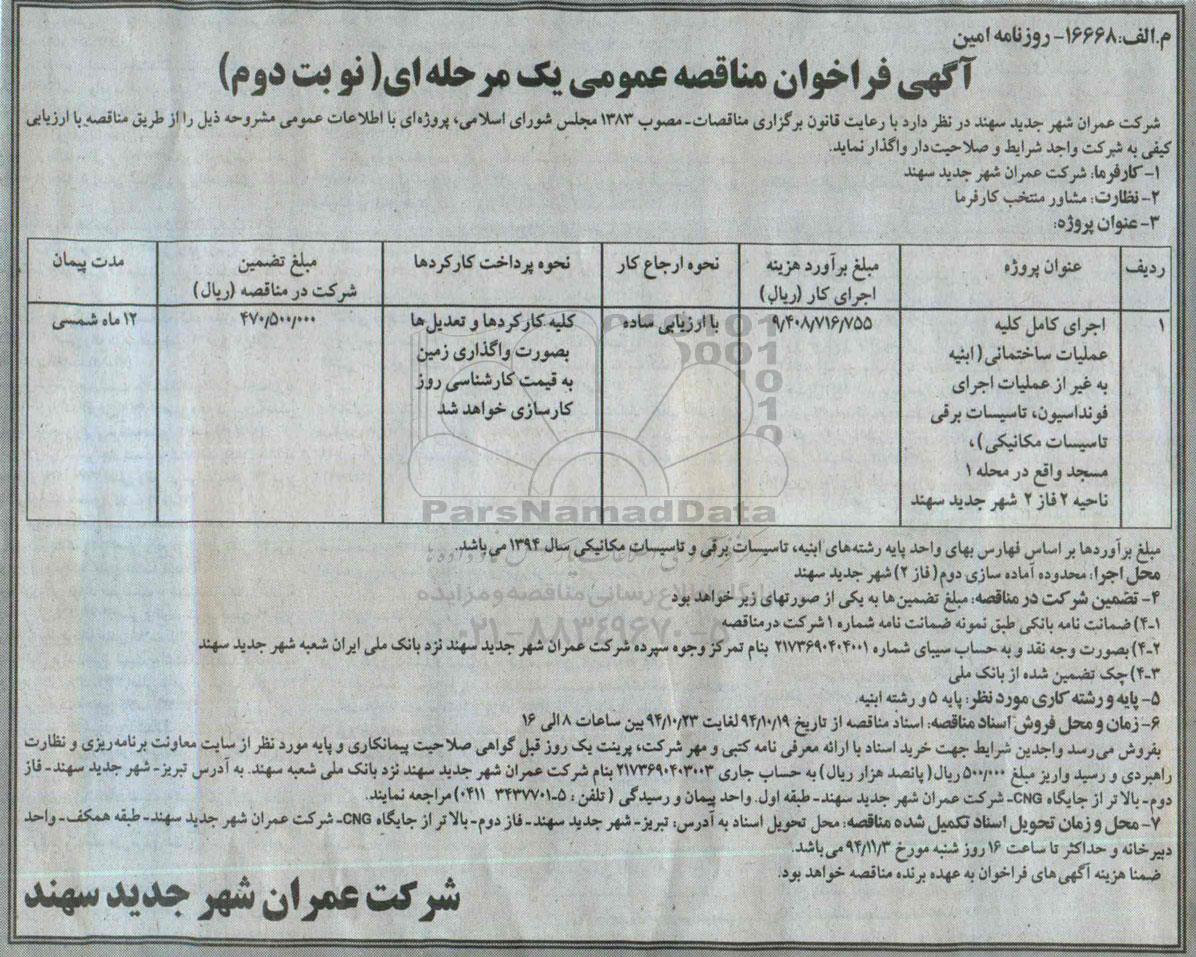 م.الف:۱۶۶۶۸- روزنامه امین
آگهی فراخوان مناقصه عمومی یک مرحله ای( نوبت دوم)
شرکت عمران شهر جدید سهند در نظر دارد با رعایت قانون برگزاری مناقصات- مصوب ۱۳۸۳ مجلس شورای اسلامی، پروژه‌ای با اطلاعات عمومی مشروحه ذیل را از طریق مناقصه با ارزیابی
کیفی به شرکت واجد شرایط و صلاحیت‌دار واگذار نماید.
۱- کارفرما: شرکت عمران شهر جدید سهند
۲- نظارت: مشاور منتخب کارفرما
۳- عنوان پروژه:
ردیف
عنوان پروژه
مبلغ برآورد هزینه
اجرای کار (ریال)
نحوه ارجاع کار
نحوه پرداخت کارکردها
مبلغ تضمین
شرکت در مناقصه (ریال)
مدت پیمان
۱
اجرای کامل کلیه
عملیات ساختمانی( ابنیه
به غیر از عملیات اجرای
فونداسیون، تاسیسات برقی
تاسیسات مکانیکی)،
مسجد واقع در محله ۱
ناحیه ۲ فاز ۲ شهر جدید سهند
۹/۴۰۸/۷۱۶/۷۵۵
با ارزیابی ساده
کلیه کارکردها و تعدیل‌ها
بصورت واگذاری زمین
به قیمت کارشناسی روز
کارسازی خواهد شد
۴۷۰/۵۰۰/۰۰۰
۱۲ ماه شمسی
ParsNamadData
مبلغ برآوردها بر اساس فهارس بهای واحد پایه رشته‌های ابنیه، تاسیسات برقی و تاسیسات مکانیکی سال ۱۳۹۴ می باشد.
محل اجرا: محدوده آماده سازی دوم( فاز ۲) شهر جدید سهند
پایگاه اطلاع رسانی مناقصه و مزایده
۴- تضمین شرکت در مناقصه: مبلغ تضمین‌ها به یکی از صورتهای زیر خواهد بود
۴-۱) ضمانت نامه بانکی طبق نمونه ضمانت نامه شماره ۱ شرکت در مناقصه
۰۲۱-۸۸۳۴۹۶۷۰-۵
۴-۲) بصورت وجه نقد و به حساب سیبای شماره ۲۱۷۳۶۹۰۴۰۴۰۰۱ بنام تمرکز وجوه سپرده شرکت عمران شهر جدید سهند نزد بانک ملی ایران شعبه شهر جدید سهند
۴-۳) چک تضمین شده از بانک ملی
۵- پایه و رشته کاری مورد نظر: پایه ۵ و رشته ابنیه.
۶- زمان و محل فروش اسناد مناقصه: اسناد مناقصه از تاریخ ۹۴/۱۰/۱۹ لغایت ۹۴/۱۰/۲۳ بین ساعات ۸ الی ۱۶
بفروش می‌رسد واجدین شرایط جهت خرید اسناد با ارائه معرفی نامه کتبی و مهر شرکت، پرینت یک روز قبل گواهی صلاحیت پیمانکاری و پایه مورد نظر از سایت معاونت برنامه‌ریزی و نظارت
راهبردی و رسید واریز مبلغ ۵۰۰/۰۰۰ ریال( پانصد هزار ریال) به حساب جاری ۲۱۷۳۶۹۰۴۰۳۰۰۳ بنام شرکت عمران شهر جدید سهند نزد بانک ملی شعبه سهند. به آدرس تبریز- شهر جدید سهند- فاز
دوم- بالاتر از جایگاه CNG- شرکت عمران شهر جدید سهند- طبقه اول. واحد پیمان و رسیدگی ( تلفن : ۵-۳۴۳۷۷۰۱ ۰۴۱۱) مراجعه نمایند.
۷- محل و زمان تحویل اسناد تکمیل شده مناقصه: محل تحویل اسناد به آدرس: تبریز- شهر جدید سهند- فاز دوم- بالاتر از جایگاه CNG- شرکت عمران شهر جدید سهند- طبقه همکف- واحد
دبیرخانه و حداکثر تا ساعت ۱۶ روز شنبه مورخ ۹۴/۱۱/۳ می باشد.
ضمنا هزینه آگهی های فراخوان به عهده برنده مناقصه خواهد بود.
شرکت عمران شهر جدید سهند